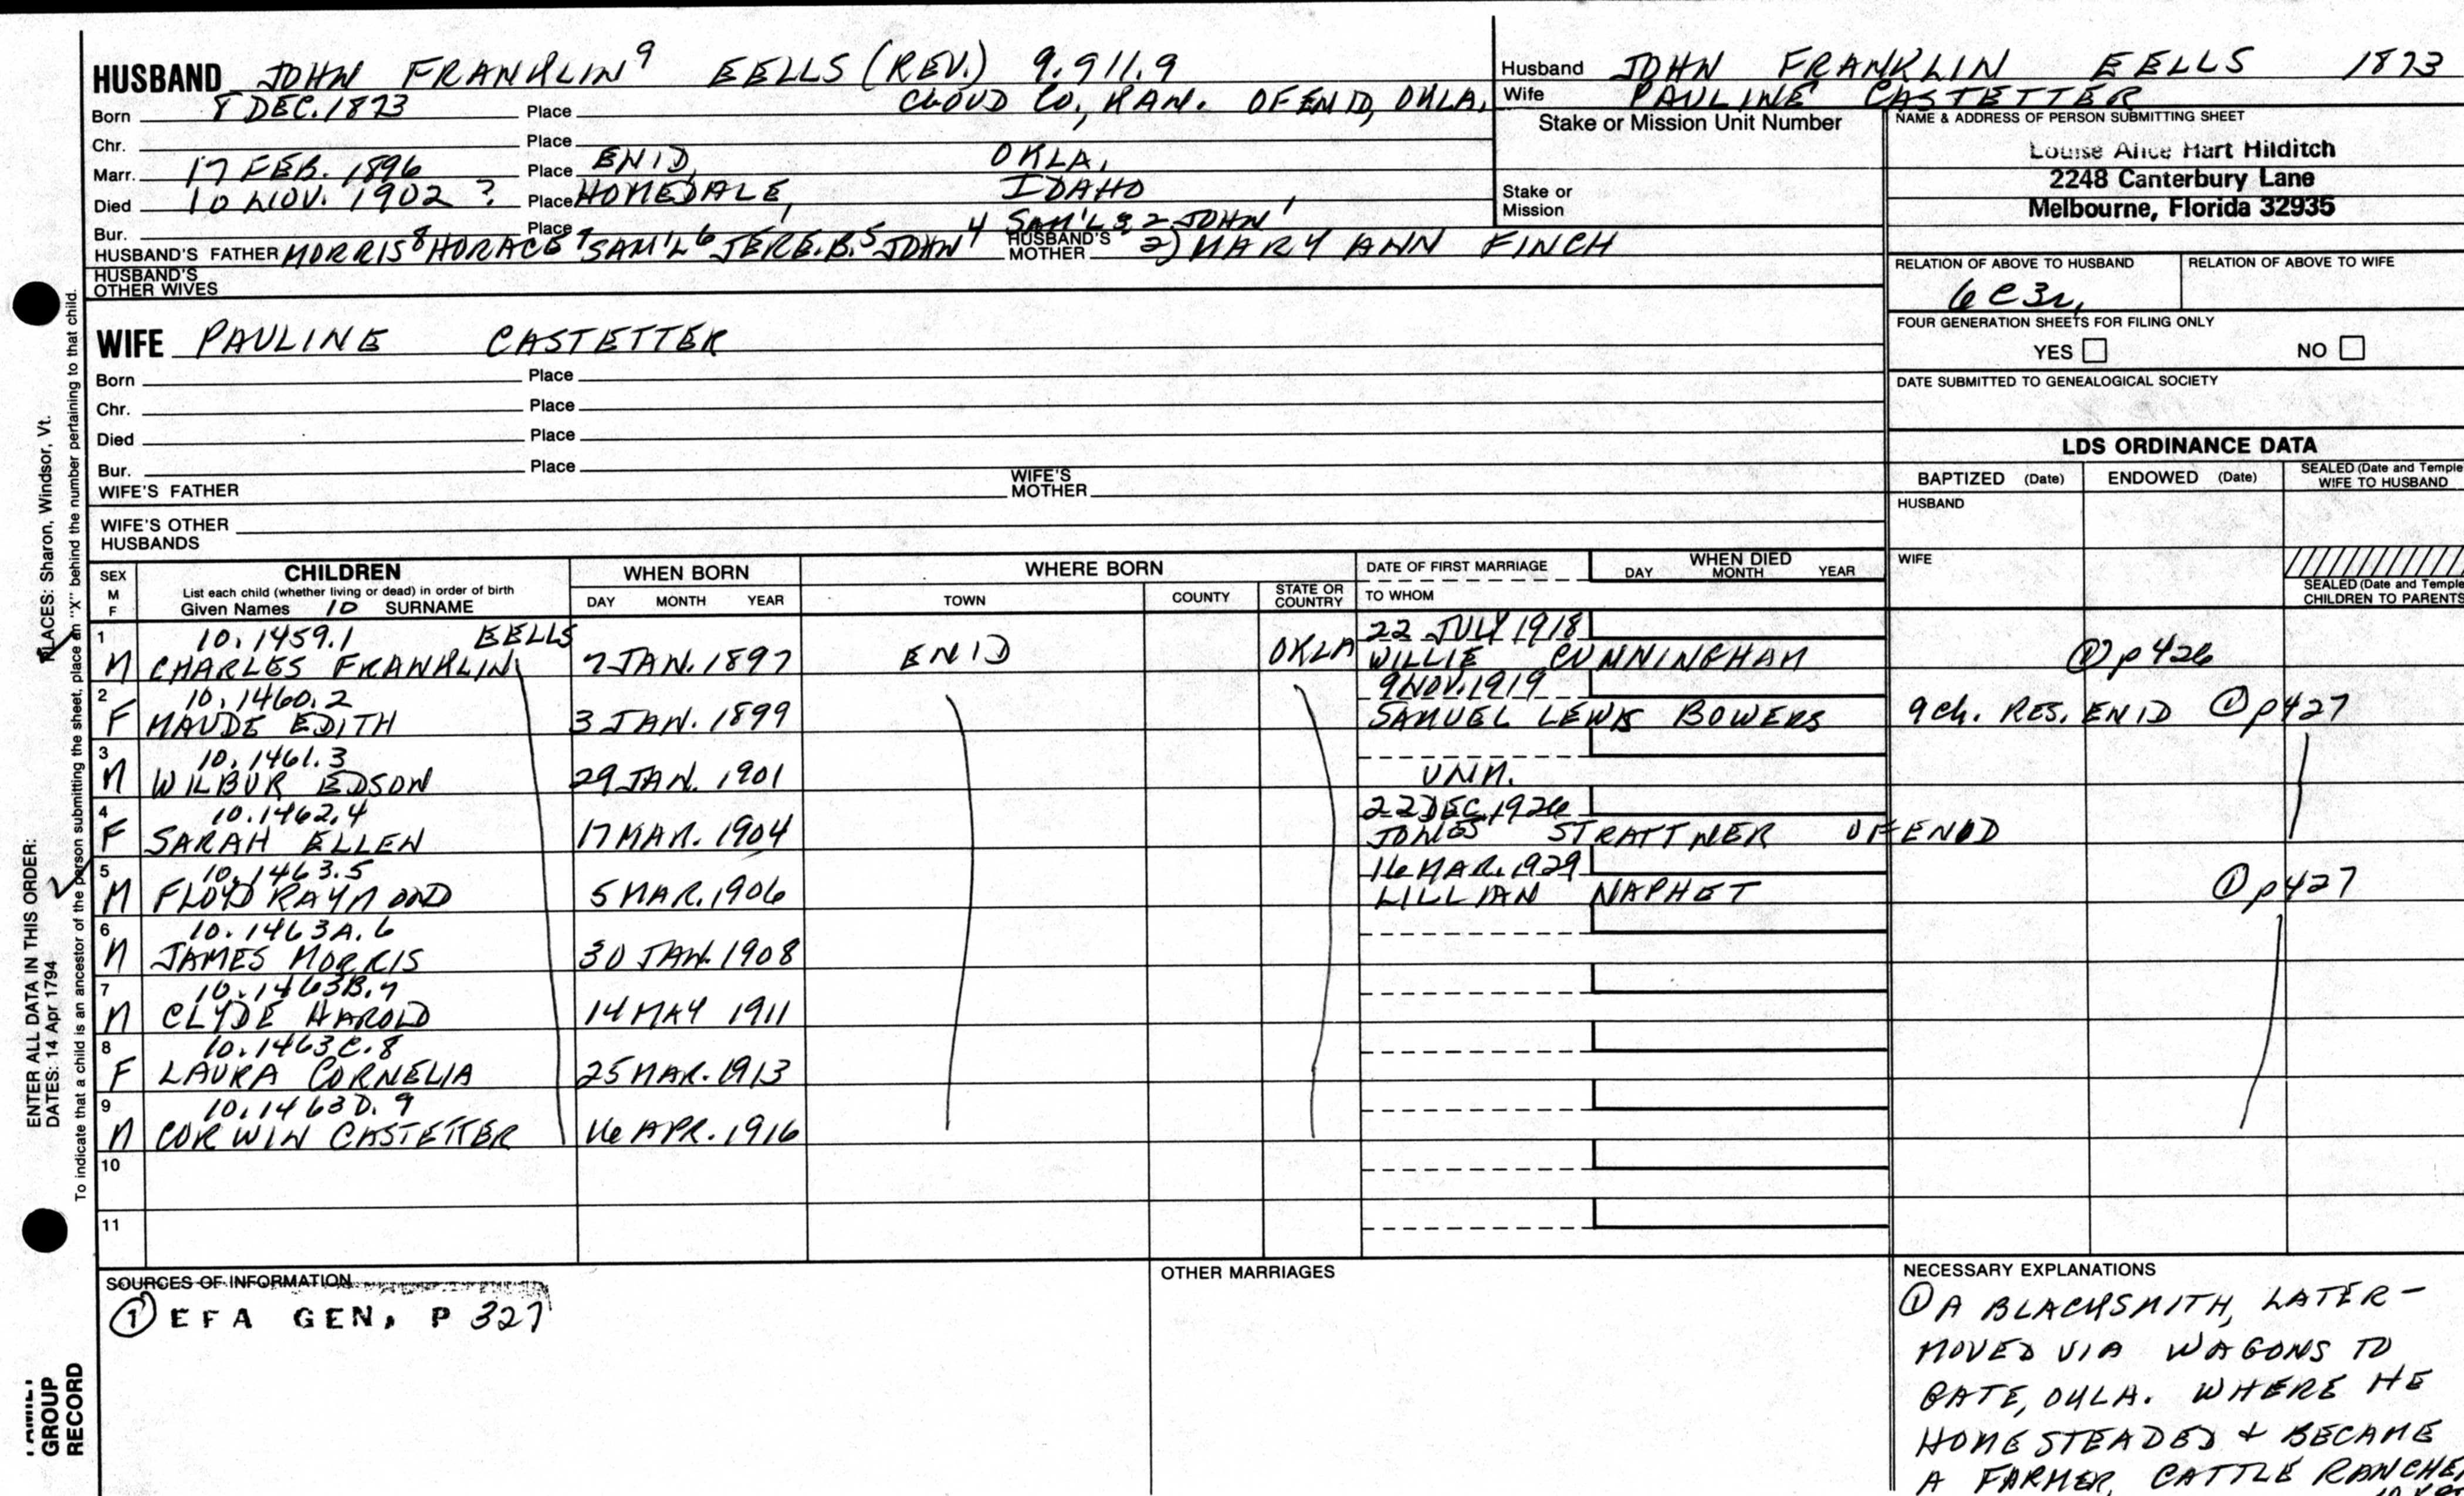 HUSBAND JOHN FRANKLIN⁹ EELLS (REV.) 9.911.9
Born 8 DEC. 1873 Place CLOUD CO, KAN. OF ENID, OKLA.
Chr. Place
Marr. 17 FEB. 1896 Place ENID, OKLA,
Died 10 NOV. 1902 ? Place HOMEDALE, IDAHO
Bur. Place SAM'L 3, 2 JOHN 1
HUSBAND'S FATHER MORRIS⁸ HORACE⁷ SAM'L⁶ JERE.B.⁵ JOHN⁴ HUSBAND'S MOTHER 2) MARY ANN FINCH
HUSBAND'S OTHER WIVES
WIFE PAULINE CASTETTER
Born Place
Chr. Place
Died Place
Bur. Place
WIFE'S FATHER WIFE'S MOTHER
WIFE'S OTHER HUSBANDS
Husband JOHN FRANKLIN EELLS 1873
Wife PAULINE CASTETTER
Stake or Mission Unit Number
Stake or Mission
NAME & ADDRESS OF PERSON SUBMITTING SHEET
Louise Alice Hart Hilditch
2248 Canterbury Lane
Melbourne, Florida 32935
RELATION OF ABOVE TO HUSBAND RELATION OF ABOVE TO WIFE
6C3r,
FOUR GENERATION SHEETS FOR FILING ONLY
YES NO
DATE SUBMITTED TO GENEALOGICAL SOCIETY
LDS ORDINANCE DATA
BAPTIZED (Date) ENDOWED (Date) SEALED (Date and Temple WIFE TO HUSBAND
HUSBAND
WIFE
SEALED (Date and Temple CHILDREN TO PARENTS
SEX M F
CHILDREN
List each child (whether living or dead) in order of birth
Given Names ID SURNAME
WHEN BORN
DAY MONTH YEAR
WHERE BORN
TOWN COUNTY STATE OR COUNTRY
DATE OF FIRST MARRIAGE
TO WHOM
WHEN DIED
DAY MONTH YEAR
1 10.1459.1 EELLS 22 JULY 1918
M CHARLES FRANKLIN 7 JAN. 1897 ENID OKLA WILLIE CUNNINGHAM ① p 426
2 10.1460.2 9 NOV. 1919
F MAUDE EDITH 3 JAN. 1899 SAMUEL LEWIS BOWERS 9 ch. RES. ENID ① p 427
3 10.1461.3
M WILBUR EDSON 29 JAN. 1901 UNM.
4 10.1462.4 22 DEC. 1926
F SARAH ELLEN 17 MAR. 1904 JONES STRATTNER OF ENID
5 10.1463.5 16 MAR. 1929
M FLOYD RAYMOND 5 MAR. 1906 LILLIAN NAPHET ① p 427
6 10.1463A.6
M JAMES MORRIS 30 JAN. 1908
7 10.1463B.7
M CLYDE HAROLD 14 MAY 1911
8 10.1463C.8
F LAURA CORNELIA 25 MAR. 1913
9 10.1463D.9
M CORWIN CASTETTER 16 APR. 1916
10
11
SOURCES OF INFORMATION
① EFA GEN, P 327
OTHER MARRIAGES
NECESSARY EXPLANATIONS
① A BLACKSMITH, LATER-
MOVED VIA WAGONS TO
GATE, OKLA. WHERE HE
HOMESTEADED & BECAME
A FARMER, CATTLE RANCHER
ENTER ALL DATA IN THIS ORDER:
DATES: 14 Apr 1794 PLACES: Sharon, Windsor, Vt.
To indicate that a child is an ancestor of the person submitting the sheet, place an "X" behind the number pertaining to that child.
FAMILY GROUP RECORD